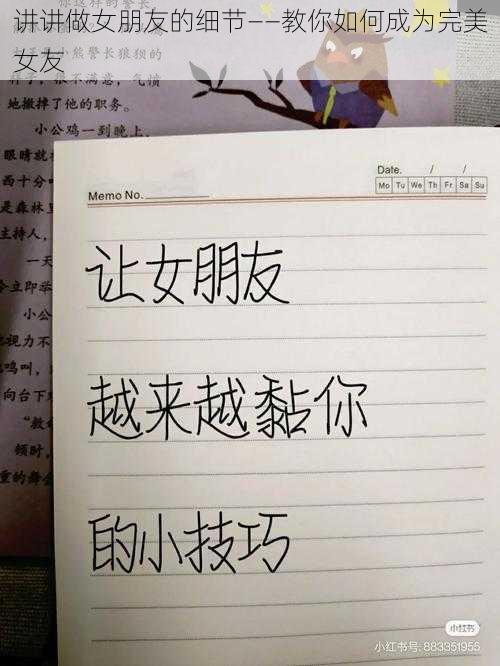 讲讲做女朋友的细节——教你如何成为完美
女友
小熊警长狼狈的
样子,很不满意,气愤
地撤掉了他的职务。
小公鸡一到晚上,
眼睛就
西十分
是森林
主持人,
一天
立即举
小公
视力不
鸣叫,
向台下
顿时,
重的舞会
Memo No.
Date. / /
Mo Tu We Th Fr Sa Su
让女朋友
越来越黏你
的小技巧
小红书
小红书号: 883351956